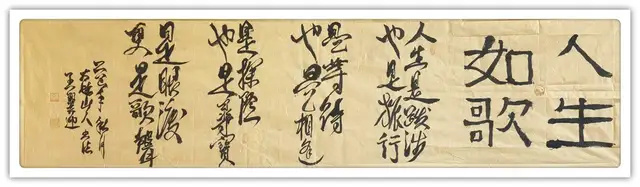 人生
如歌
人生是跋涉
也是旅行
是等待
也是相逢
是探險
也是尋寶
是眼淚
更是歌聲